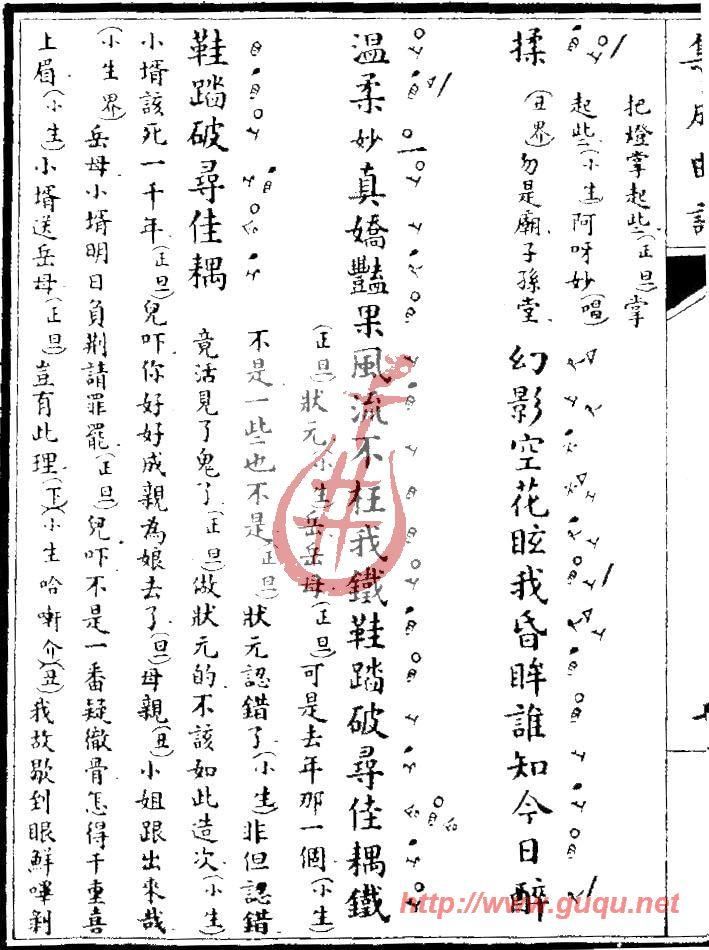 集成曲譜
把燈掌起些(正旦)掌
起些(小生)阿呀妙(唱)
揉(丑界)勿是廟子孫堂
幻影空花眩我昏眸誰知今日醉
溫柔妙真嬌豔果風流不枉我鐵鞋踏破尋佳耦鐵
(正旦)狀元(小生)岳岳母(正旦)可是去年那一個(小生)
不是一些也不是(正旦)狀元認錯了(小生)非但認錯
鞋踏破尋佳耦
竟活見了鬼了(正旦)做狀元的不該如此造次(小生)
小壻該死一千年(正旦)兒吓你好好成親為娘去了(旦)母親(丑)小姐跟出來哉
(小生界)岳母小壻明日負荊請罪罷(正旦)兒吓不是一番疑徹骨怎得千重喜
上眉(小生)小壻送岳母(正旦)豈有此理(下)(小生哈嘶介)(丑)我故歇到眼鮮嗶剝
http://www.guqu.net